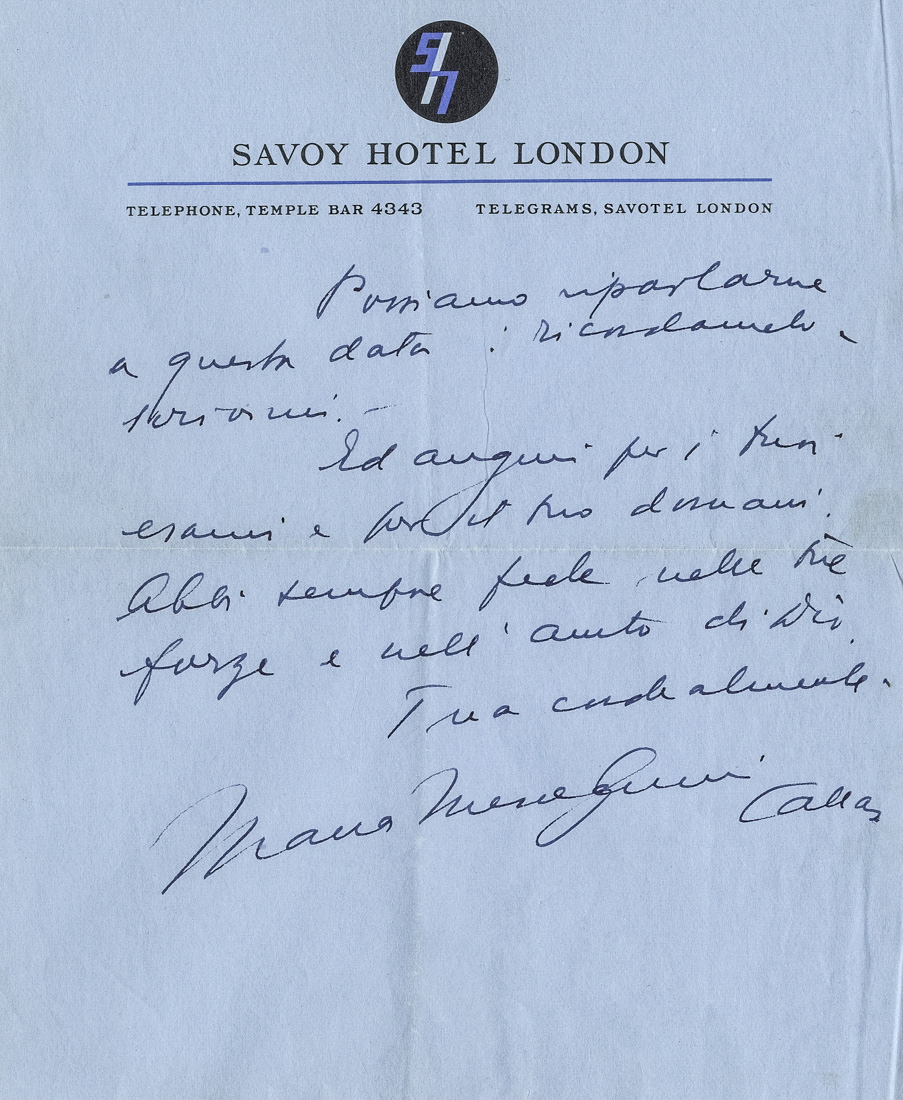 SH
SAVOY HOTEL LONDON
TELEPHONE, TEMPLE BAR 4343 TELEGRAMS, SAVOTEL LONDON
Possiamo riparlarne
a questa data : ricordamelo.
scrivimi. -
Ed auguri per i tuoi
esami e per il tuo domani.
Abbi sempre fede nelle tue
forze e nell' aiuto di Dio.
Tua cordialmente.
Maria Meneghini Callas